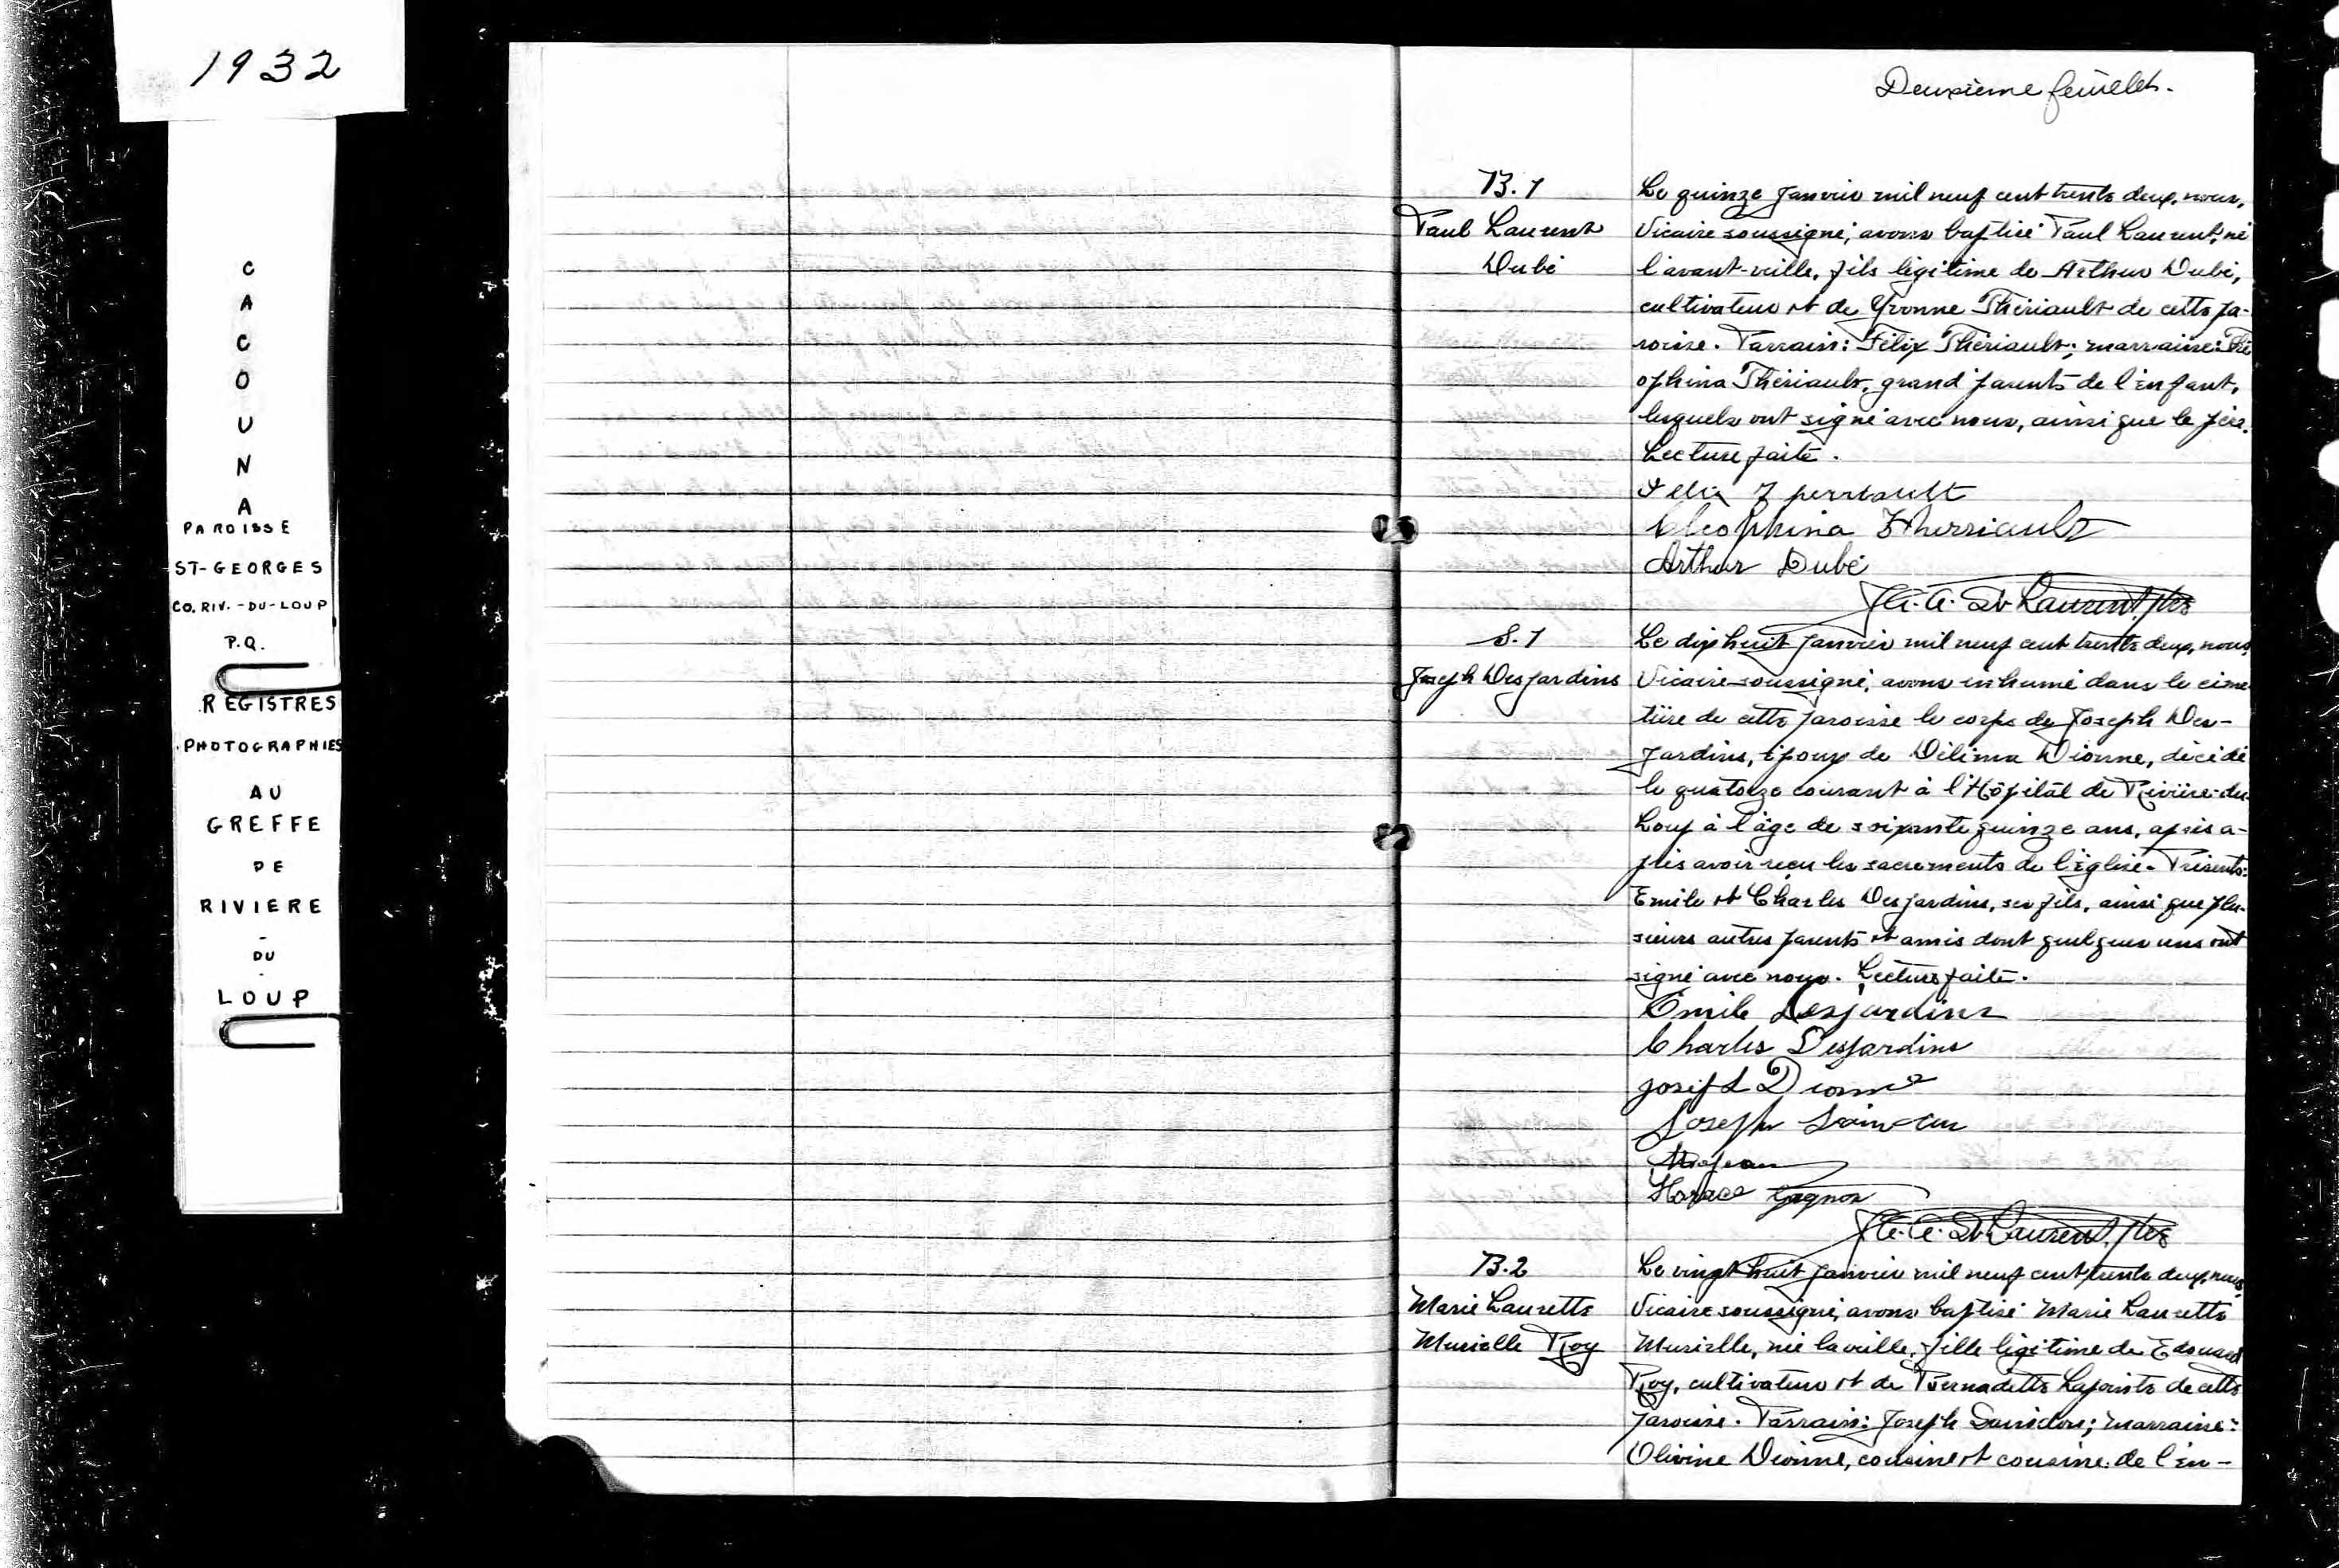 1932
C
A
C
O
U
N
A
PAROISSE
ST-GEORGES
CO. RIV.-DU-LOUP
P.Q.
REGISTRES
PHOTOGRAPHIES
AU
GREFFE
DE
RIVIERE
-
DU
-
LOUP
Deuxième feuillet.
B. 1
Paul Laurent
Dubé
Le quinze janvier mil neuf cent trente deux, nous,
Vicaire soussigné, avons baptisé Paul Laurent, né
l'avant-veille, fils légitime de Arthur Dubé,
cultivateur et de Yvonne Thériault de cette pa-
roisse. Parrain: Félix Thériault; marraine: Clé
ophina Thériault, grand parents de l'enfant,
lesquels ont signé avec nous, ainsi que le père.
Lecture faite.
Felix Therriault
Cléophina Therriault
Arthur Dubé
St-Laurent, ptre
S. 1
Joseph DesJardins
Le dix huit janvier mil neuf cent trente deux, nous,
Vicaire soussigné, avons inhumé dans le cime
tière de cette paroisse le corps de Joseph Des-
Jardins, époux de Délima Dionne, décédé
le quatorze courant à l'Hôpital de Rivière-du-
Loup à l'âge de soixante quinze ans, après a-
près avoir reçu les sacrements de l'Église. Présents:
Emile et Charles Desjardins, ses fils, ainsi que plu-
sieurs autres parents et amis dont quelques uns ont
signé avec nous. Lecture faite.
Emile Desjardins
Charles Desjardins
Josept Dionne
Joseph
Horace Gagnon
St-Laurent, ptre
B. 2
Marie Laurette
Murielle Roy
Le vingt huit janvier mil neuf cent trente deux, nous,
Vicaire soussigné, avons baptisé Marie Laurette
Murielle, née la veille, fille légitime de Edouard
Roy, cultivateur et de Bernadette Lapointe de cette
paroisse. Parrain: Joseph; marraine:
Olivine Dionne, cousin et cousine de l'en-